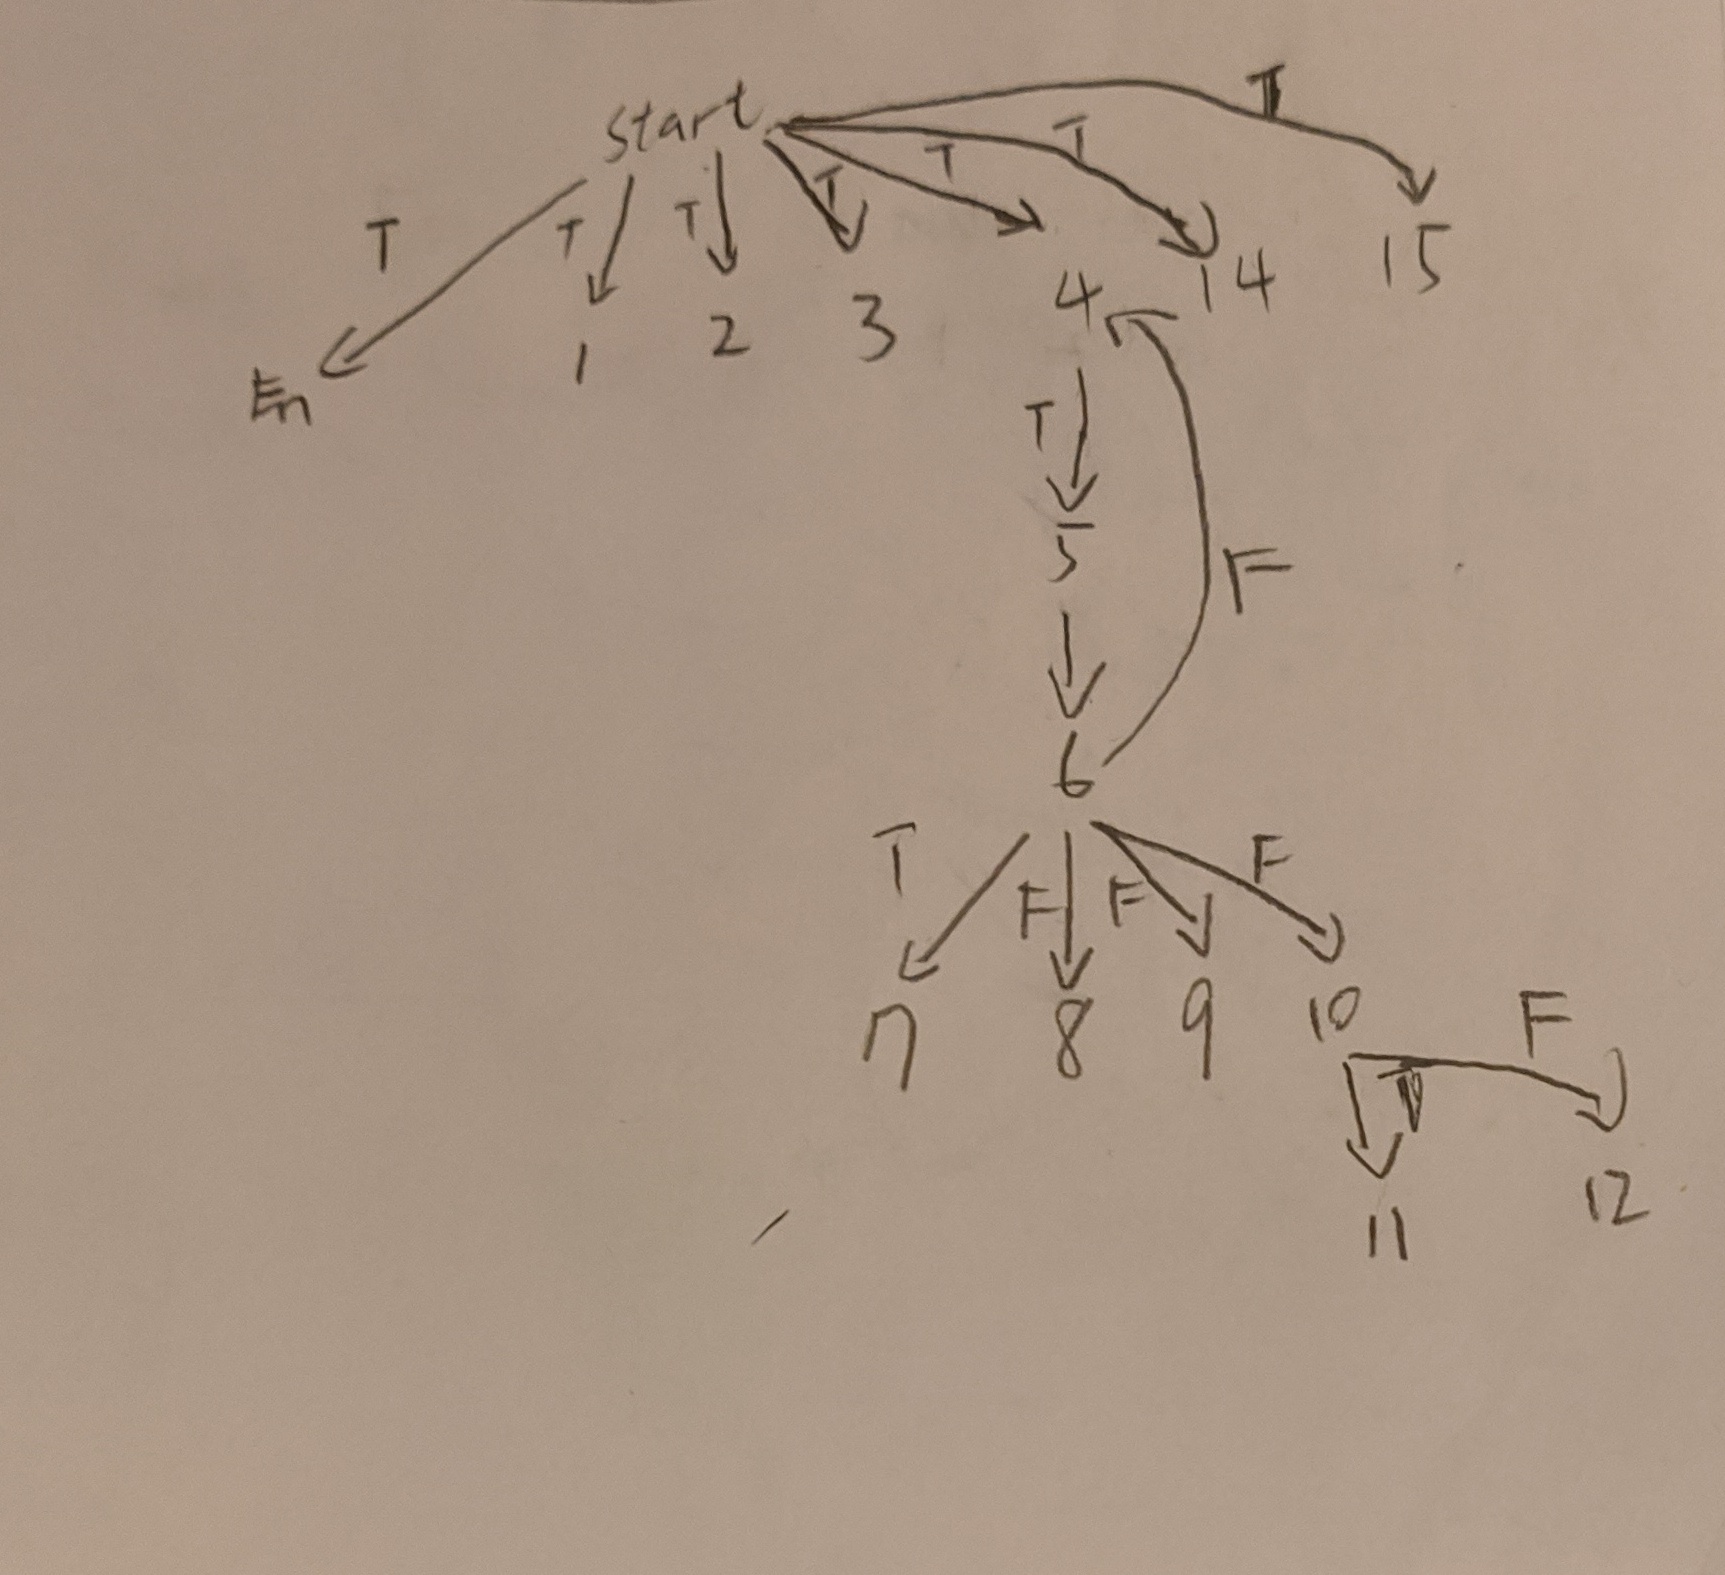 start
T T T T T T T
En 1 2 3 4 14 15
T
5
F
6
T F F F
7 8 9 10
T F
11 12